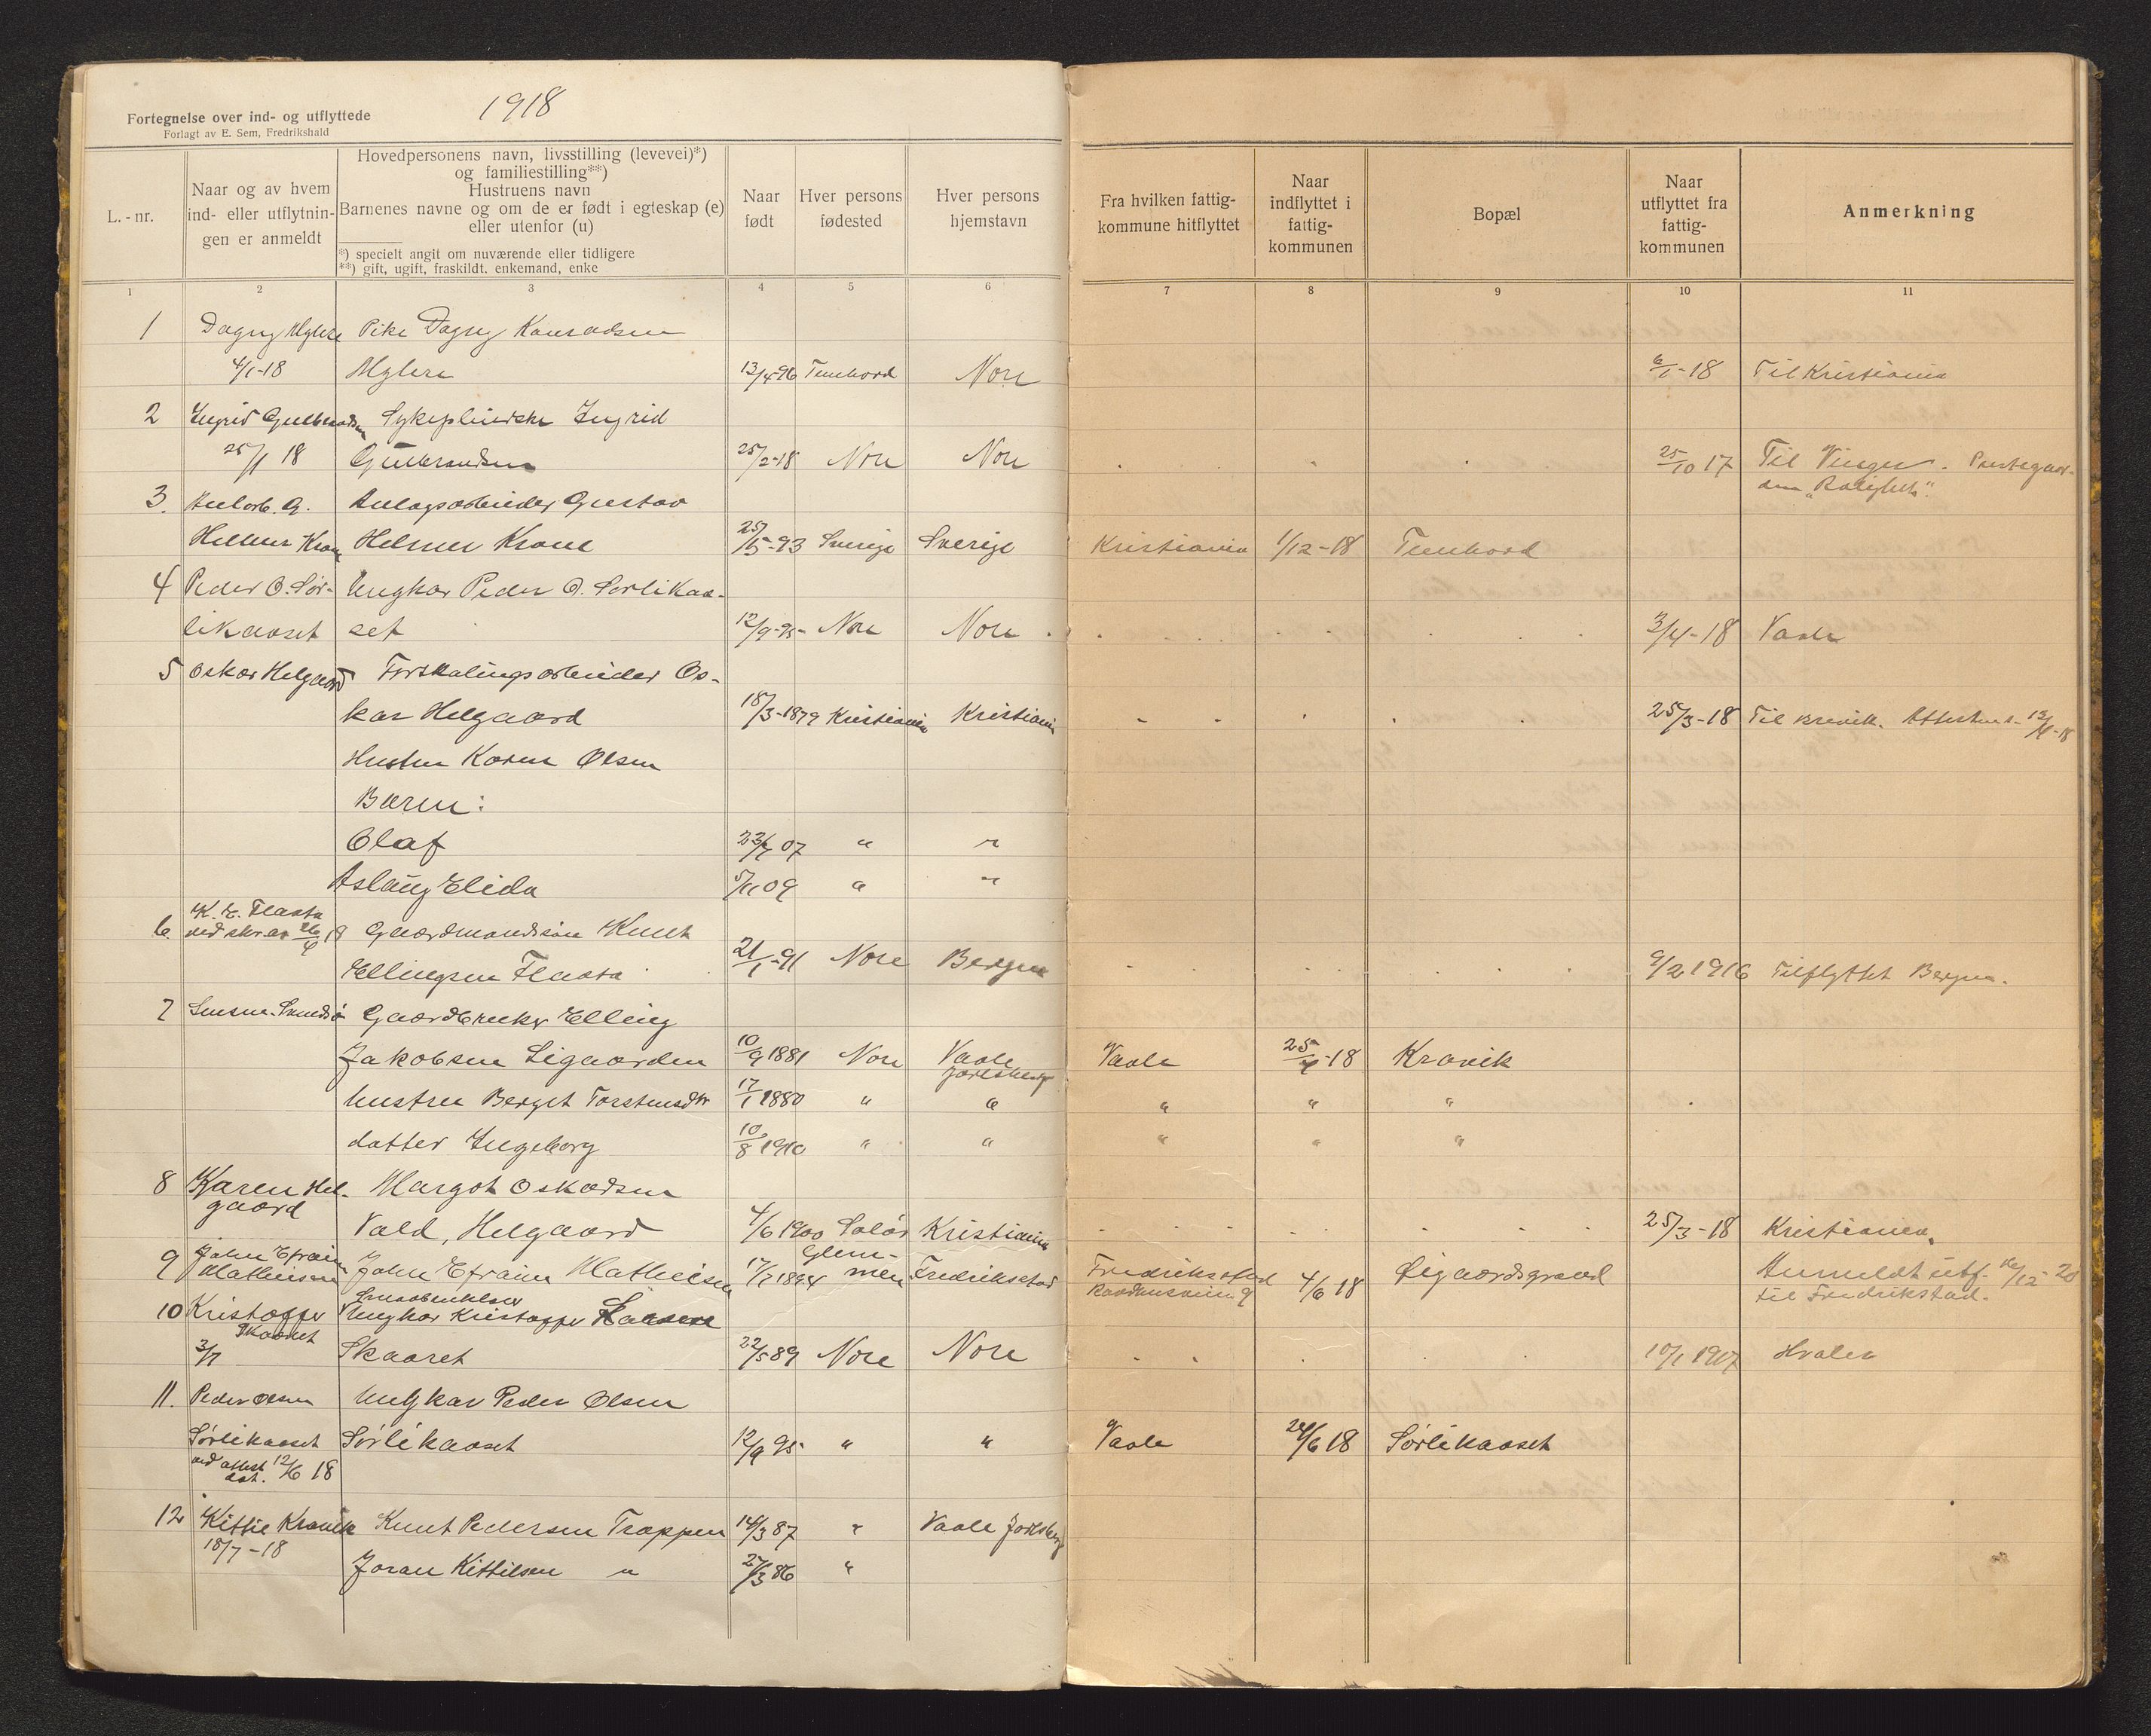 1918
Fortegnelse over ind- og utflyttede
Forlagt av E. Sem, Fredrikshald
L.-nr.
Naar og av hvem ind- eller utflytnin-gen er anmeldt
Hovedpersonens navn, livsstilling (levevei)*)
og familiestilling**)
Hustruens navn
Barnenes navne og om de er født i egteskap (e)
eller utenfor (u)
*) specielt angit om nuværende eller tidligere
**) gift, ugift, fraskildt. enkemand, enke
Naar født
Hver persons fødested
Hver persons hjemstavn
Fra hvilken fattig-kommune hitflyttet
Naar indflyttet i fattig-kommunen
Bopæl
Naar utflyttet fra fattig-kommunen
Anmerkning
1 2 3 4 5 6 7 8 9 10 11
1 Dagny Myhre Pike Dagny Konradsen
4/1-18 Myhre 13/4-96 Tunhovd Nore 6/1-18 Til Kristiania
2 Ingrid Gulbrandsen Sykepleierske Ingrid
25/1 18 Gulbrandsen 25/2-18 Nore Nore 25/10 17 Til Vinger.
3. Anl.arb. G. Anlægsarbeider Gustav
Helmer Krone Helmer Krone 25/5-93 Sverige Sverige Kristiania 1/12-18 Tunhovd
4 Peder O. Sør- Ungkar Peder O. Sørlikaa-
likaaset set 12/9-95- Nore Nore 3/4-18 Vaale
5 Oskar Helgaard Forskalingsarbeider Os-
kar Helgaard 18/3-1879 Kristiania Kristiania 25/3-18 Til Brevik. 12/4-18
Hustru Karen Olsen
Barn:
Olaf 23/7 07 " "
Aslaug Elida 5/11 09 " "
K. E. Flaata
6 ved skr. av 26/4 18 Gaardmandssøn Knut
Ellingsen Flaata 21/1-91 Nore Bergen 9/2 1916 Tilflyttet Bergen.
7 Gaardbruker Elling
Jakobsen Ligaarden 10/9 1881 Nore Vaale Jarlsberg Vaale 25/4-18 Kravik
hustru Berget Torstensdtr 17/1 1880 " " " " "
datter Ingeborg 10/8 1910 " " " " "
8 Karen Hel-gaard Margot Oskardsen
Vald, Helgaard 4/6 1900 Solør Kristiania 25/3-18 Kristiania.
9 John Efraim Mathiesen John Efraim Mathiesen 17/7 1894 Glem-men Fredriksstad Fredriksstad 4/6 18 Øigaardsgrend Anmeldt utf. 16/12-20
til Fredrikstad.
10 Kristoffer Skaaret Ungkar Kristoffer
3/7 Skaaret 22/5 89 Nore Nore 10/1 1917 Hvaler
11. Peder Olsen Ungkar Peder Olsen
Sørlikaaset Sørlikaaset 12/9 95- " " Vaale 24/6 18 Sørlikaaset
ved attest dat. 12/6 18
12 Kittil Kravik Knut Pedersen Trappen 14/3 87 " Vaale Jarlsberg
18/7-18 Joran Kittilsen " 27/3 86 "